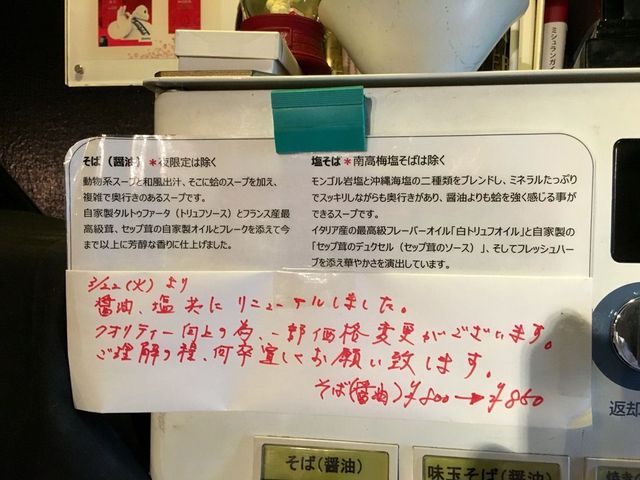 ミシュランガイ
そば（醤油）＊夜限定は除く
動物系スープと和風出汁、そこに蛤のスープを加え、
複雑で奥行きのあるスープです。
自家製タルトゥファータ（トリュフソース）とフランス産最
高級茸、セップ茸の自家製オイルとフレークを添えて今
まで以上に芳醇な香りに仕上げました。
塩そば＊南高梅塩そばは除く
モンゴル岩塩と沖縄海塩の二種類をブレンドし、ミネラルたっぷり
でスッキリしながらも奥行きがあり、醤油よりも蛤を強く感じる事が
できるスープです。
イタリア産の最高級フレーバーオイル「白トリュフオイル」と自家製の
「セップ茸のデュクセル（セップ茸のソース）」、そしてフレッシュハー
ブを添え華やかさを演出しています。
3/22（火）より
醤油、塩共にリニューアルしました。
クオリティー向上の為、一部価格変更がございます。
ご理解の程、何卒宜しくお願い致します。
そば（醤油）¥800→¥850
返却
そば（醤油）
味玉そば（醤油）